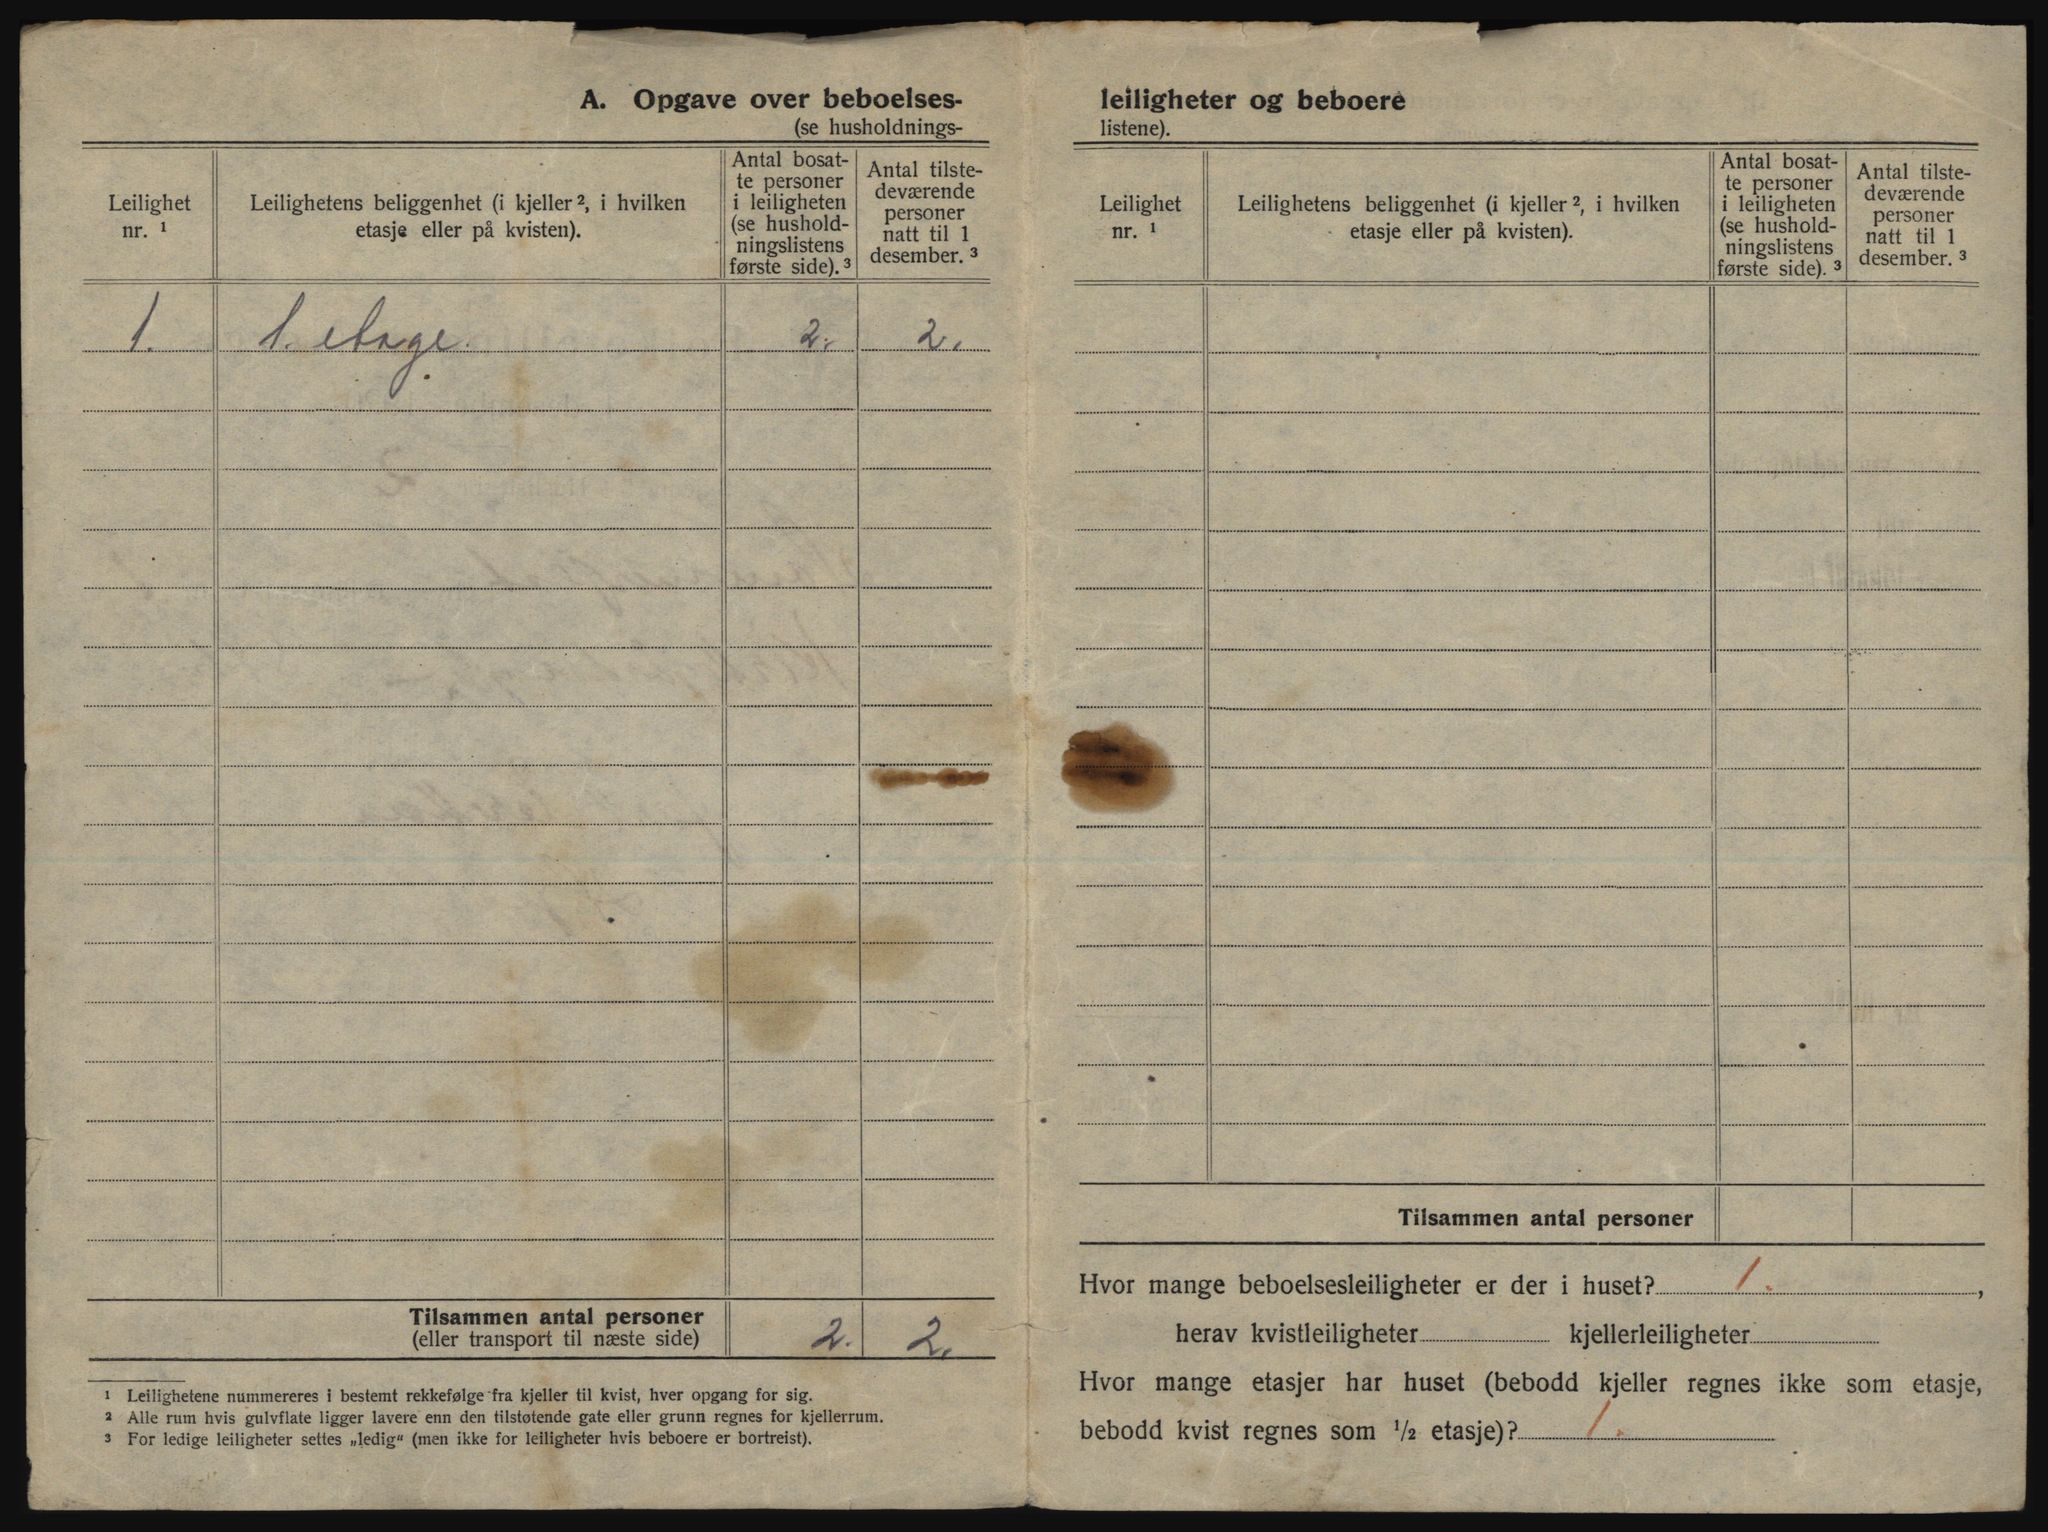 A. Opgave over beboelses-
(se husholdnings-
Leilighet
nr. ¹
Leilighetens beliggenhet (i kjeller ², i hvilken
etasje eller på kvisten).
Antal bosat-
te personer
i leiligheten
(se hushold-
ningslistens
første side). ³
Antal tilste-
deværende
personer
natt til 1
desember. ³
1. 1. etage. 2. 2.
Tilsammen antal personer
(eller transport til næste side)
2. 2.
¹ Leilighetene nummereres i bestemt rekkefølge fra kjeller til kvist, hver opgang for sig.
² Alle rum hvis gulvflate ligger lavere enn den tilstøtende gate eller grunn regnes for kjellerrum.
³ For ledige leiligheter settes „ledig“ (men ikke for leiligheter hvis beboere er bortreist).
leiligheter og beboere
listene).
Leilighet
nr. ¹
Leilighetens beliggenhet (i kjeller ², i hvilken
etasje eller på kvisten).
Antal bosat-
te personer
i leiligheten
(se hushold-
ningslistens
første side). ³
Antal tilste-
deværende
personer
natt til 1
desember. ³
Tilsammen antal personer
Hvor mange beboelsesleiligheter er der i huset? 1. ,
herav kvistleiligheter kjellerleiligheter
Hvor mange etasjer har huset (bebodd kjeller regnes ikke som etasje,
bebodd kvist regnes som ½ etasje)? 1.